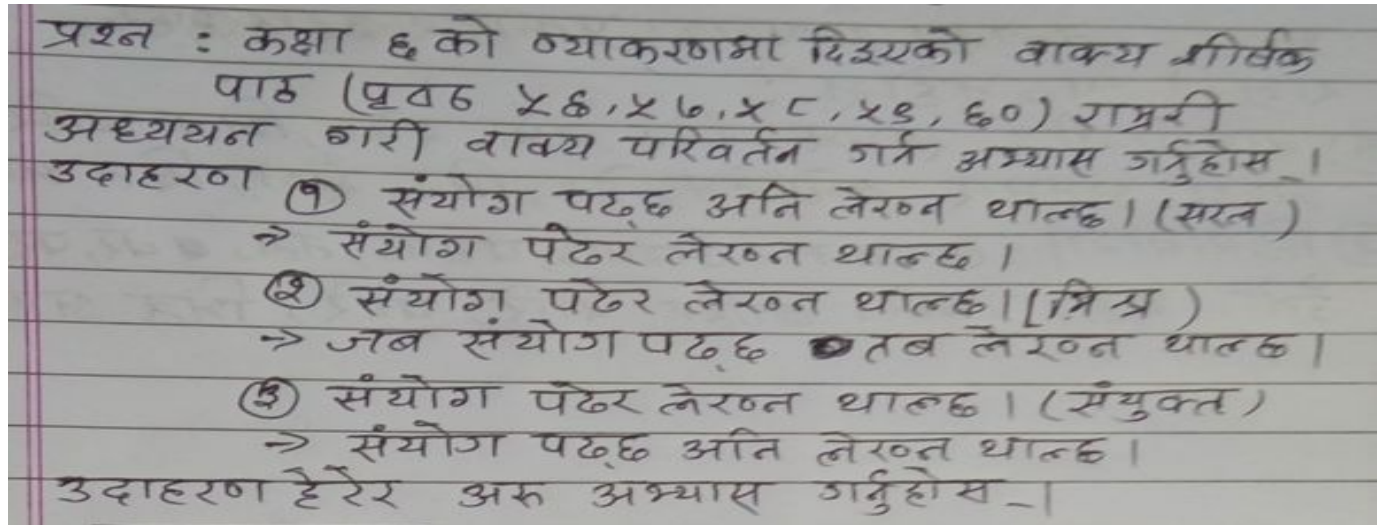 प्रश्न : कक्षा ६ को व्याकरणमा दिइएको वाक्य शीर्षक
पाठ (पृष्ठ ५६, ५७, ५८, ५९, ६०) राम्ररी
अध्ययन गरी वाक्य परिवर्तन गर्न अभ्यास गर्नुहोस् ।
उदाहरण ① संयोग पढ्छ अनि लेख्न थाल्छ । (सरल)
→ संयोग पढेर लेख्न थाल्छ ।
② संयोग पढेर लेख्न थाल्छ । (मिश्र)
→ जब संयोग पढ्छ तब लेख्न थाल्छ ।
③ संयोग पढेर लेख्न थाल्छ । (संयुक्त)
→ संयोग पढ्छ अनि लेख्न थाल्छ ।
उदाहरण हेरेर अरु अभ्यास गर्नुहोस् ।